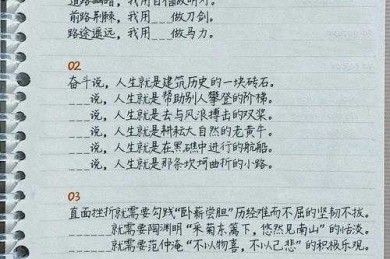 前路荆棘，我用___做刀剑。
路途遥远，我用___做马力。
02
奋斗说，人生就是建筑历史的一块砖石。
___说，人生就是帮助别人攀登的阶梯。
___说，人生就是去与风浪搏击的双桨。
___说，人生就是耕耘大自然的老黄牛。
___说，人生就是在黑礁中进行的航船。
___说，人生就是那条坎坷曲折的小路。
03
直面挫折就需要勾践“卧薪尝胆”历经难而不屈的坚韧不拔。
___就需要陶渊明“采菊东篱下，悠然见南山”的恬淡。
___就需要范仲淹“不以物喜，不以己悲”的积极乐观。